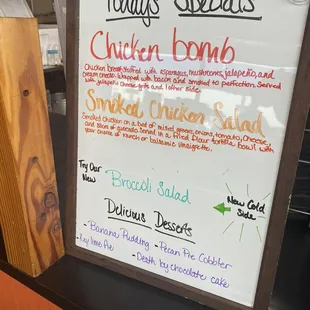 Todays Specials
Chicken bomb
Chicken breast stuffed with asparagus, mushrooms, jalapeño, and
cream cheese. Wrapped with bacon and smoked to perfection. Served
with jalapeño cheese grits and 1 other side.
Smoked Chicken Salad
Smoked Chicken on a bed of mixed greens, onions, tomato, cheese
and slices of avocado served in a fried flour tortilla bowl with
your choice of ranch or balsamic vinaigrette.
Try Our
New
Broccoli Salad
New Cold
Side
Delicious Desserts
- Banana Pudding - Pecan Pie Cobbler
- Key lime Pie
- Death by chocolate cake